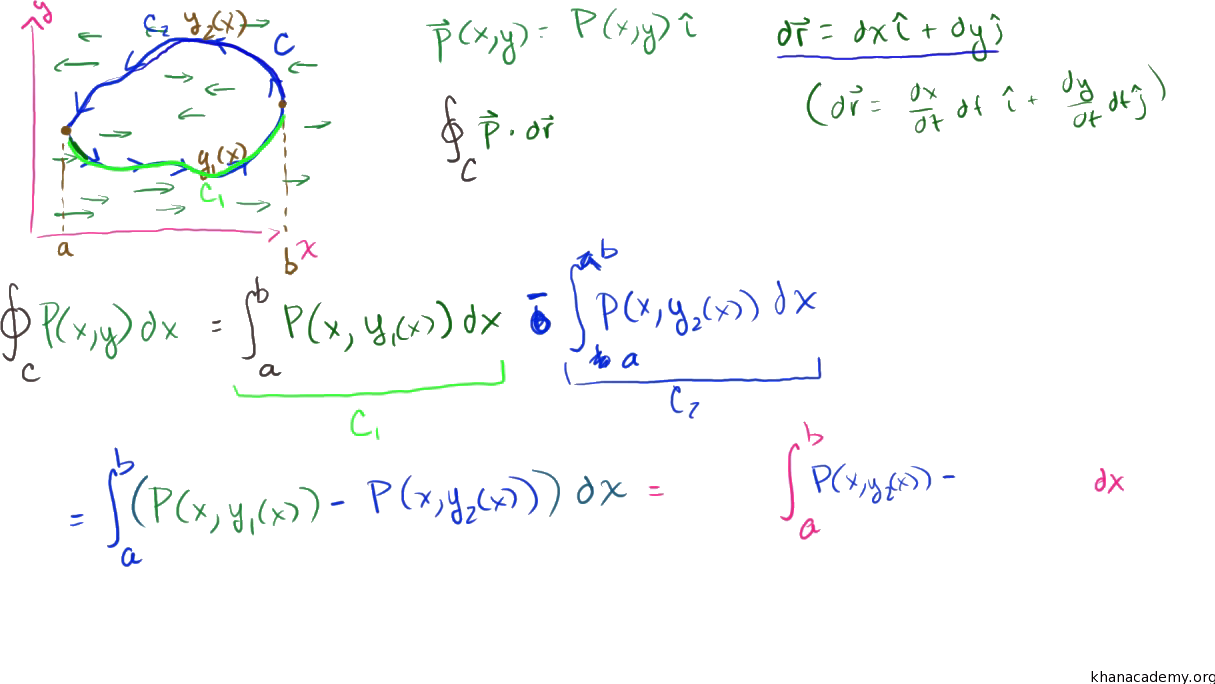 y
C₂ y₂(x)
C
y₁(x)
C₁
a
b
x
P⃗(x,y) = P(x,y) î
dr⃗ = dx î + dy ĵ
(dr⃗ = dx/dt dt î + dy/dt dt ĵ)
∮_C P⃗ · dr⃗
∮_C P(x,y) dx = ∫_a^b P(x, y₁(x)) dx − ∫_a^b P(x, y₂(x)) dx
C₁
C₂
= ∫_a^b (P(x, y₁(x)) − P(x, y₂(x))) dx = ∫_a^b P(x, y₂(x)) − dx
khanacademy.org